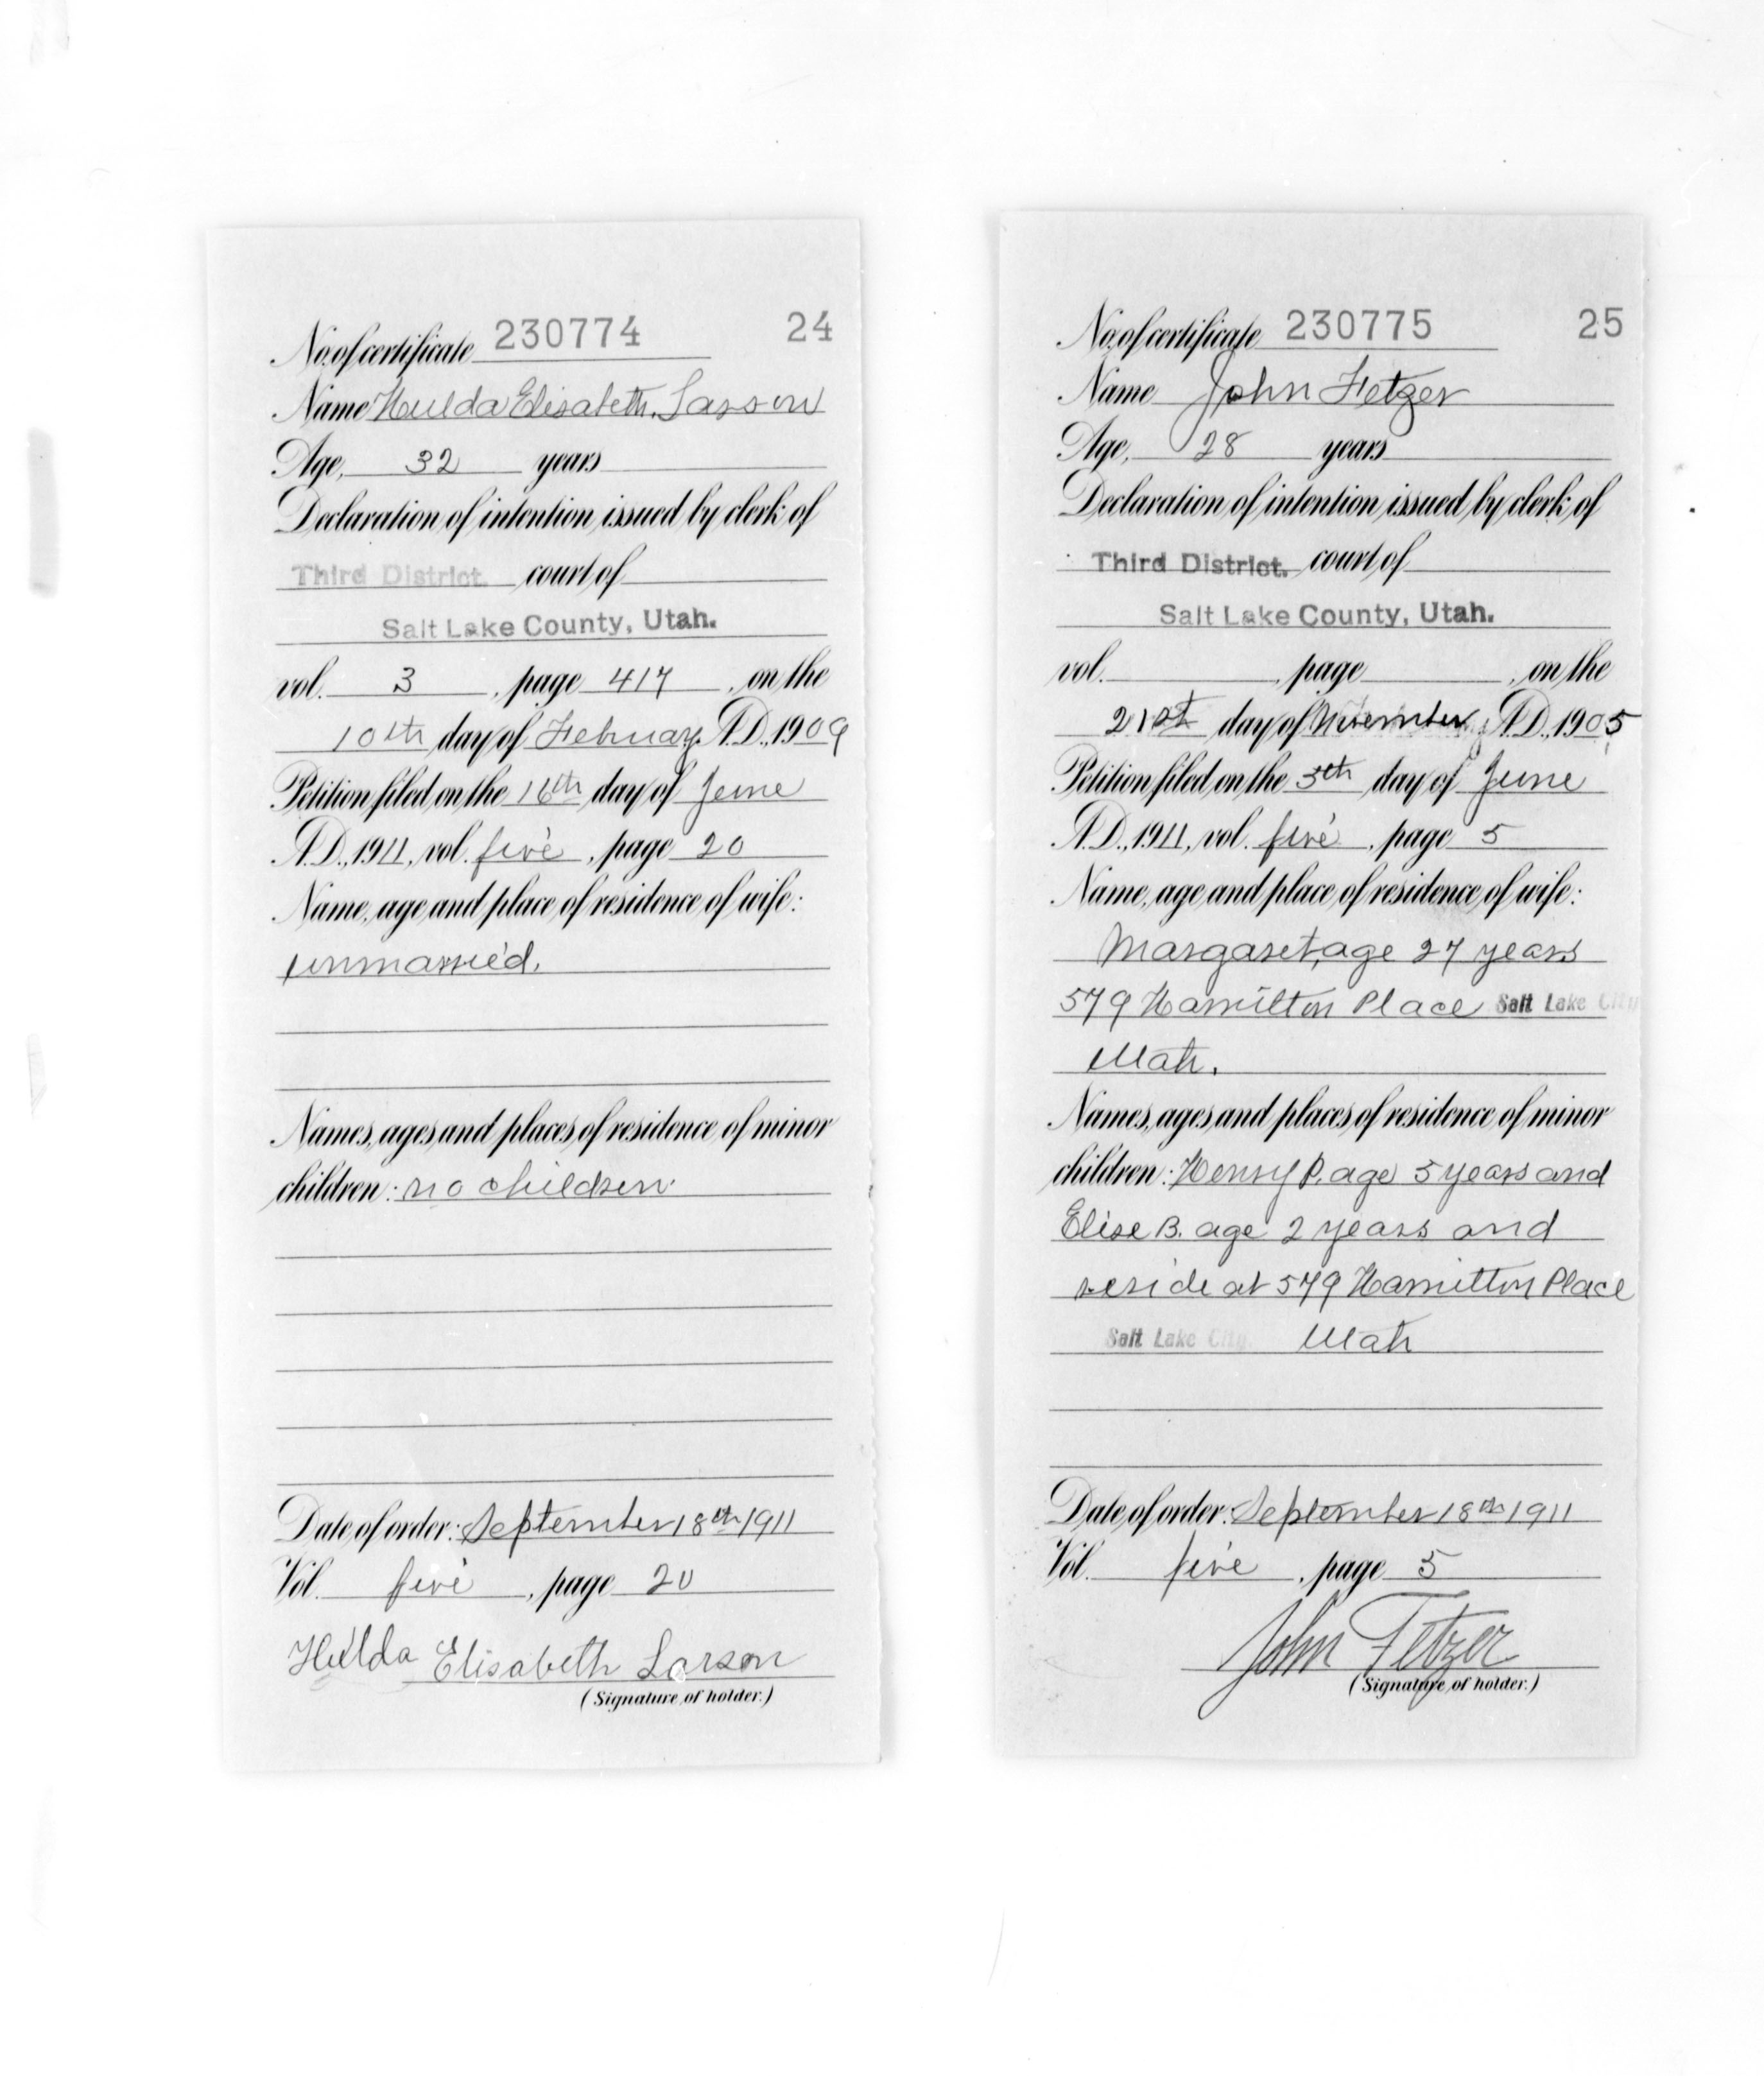 No. of certificate 230774 24
Name Hulda Elisabeth Larson
Age, 32 years
Declaration of intention issued by clerk of
Third District. court of
Salt Lake County, Utah.
vol. 3, page 417, on the
10th day of Februay. A.D., 1909
Petition filed on the 16th day of June
A.D., 1911, vol. five, page 20
Name, age and place of residence of wife:
unmarried.
Names, ages and places of residence of minor
children: no children
Date of order: September 18th 1911
Vol. five, page 20
Hulda Elisabeth Larson
(Signature of holder.)
No. of certificate 230775 25
Name John Fetzer
Age, 28 years
Declaration of intention issued by clerk of
Third District. court of
Salt Lake County, Utah.
vol. , page , on the
21st day of November, A.D., 1905
Petition filed on the 5th day of June
A.D., 1911, vol. five, page 5
Name, age and place of residence of wife:
Margaret, age 27 years
579 Hamilton Place Salt Lake City
Utah.
Names, ages and places of residence of minor
children: Henry P. age 5 years and
Elise B. age 2 years and
reside at 579 Hamilton Place
Salt Lake City. Utah
Date of order: September 18th 1911
Vol. five, page 5
John Fetzer
(Signature of holder.)